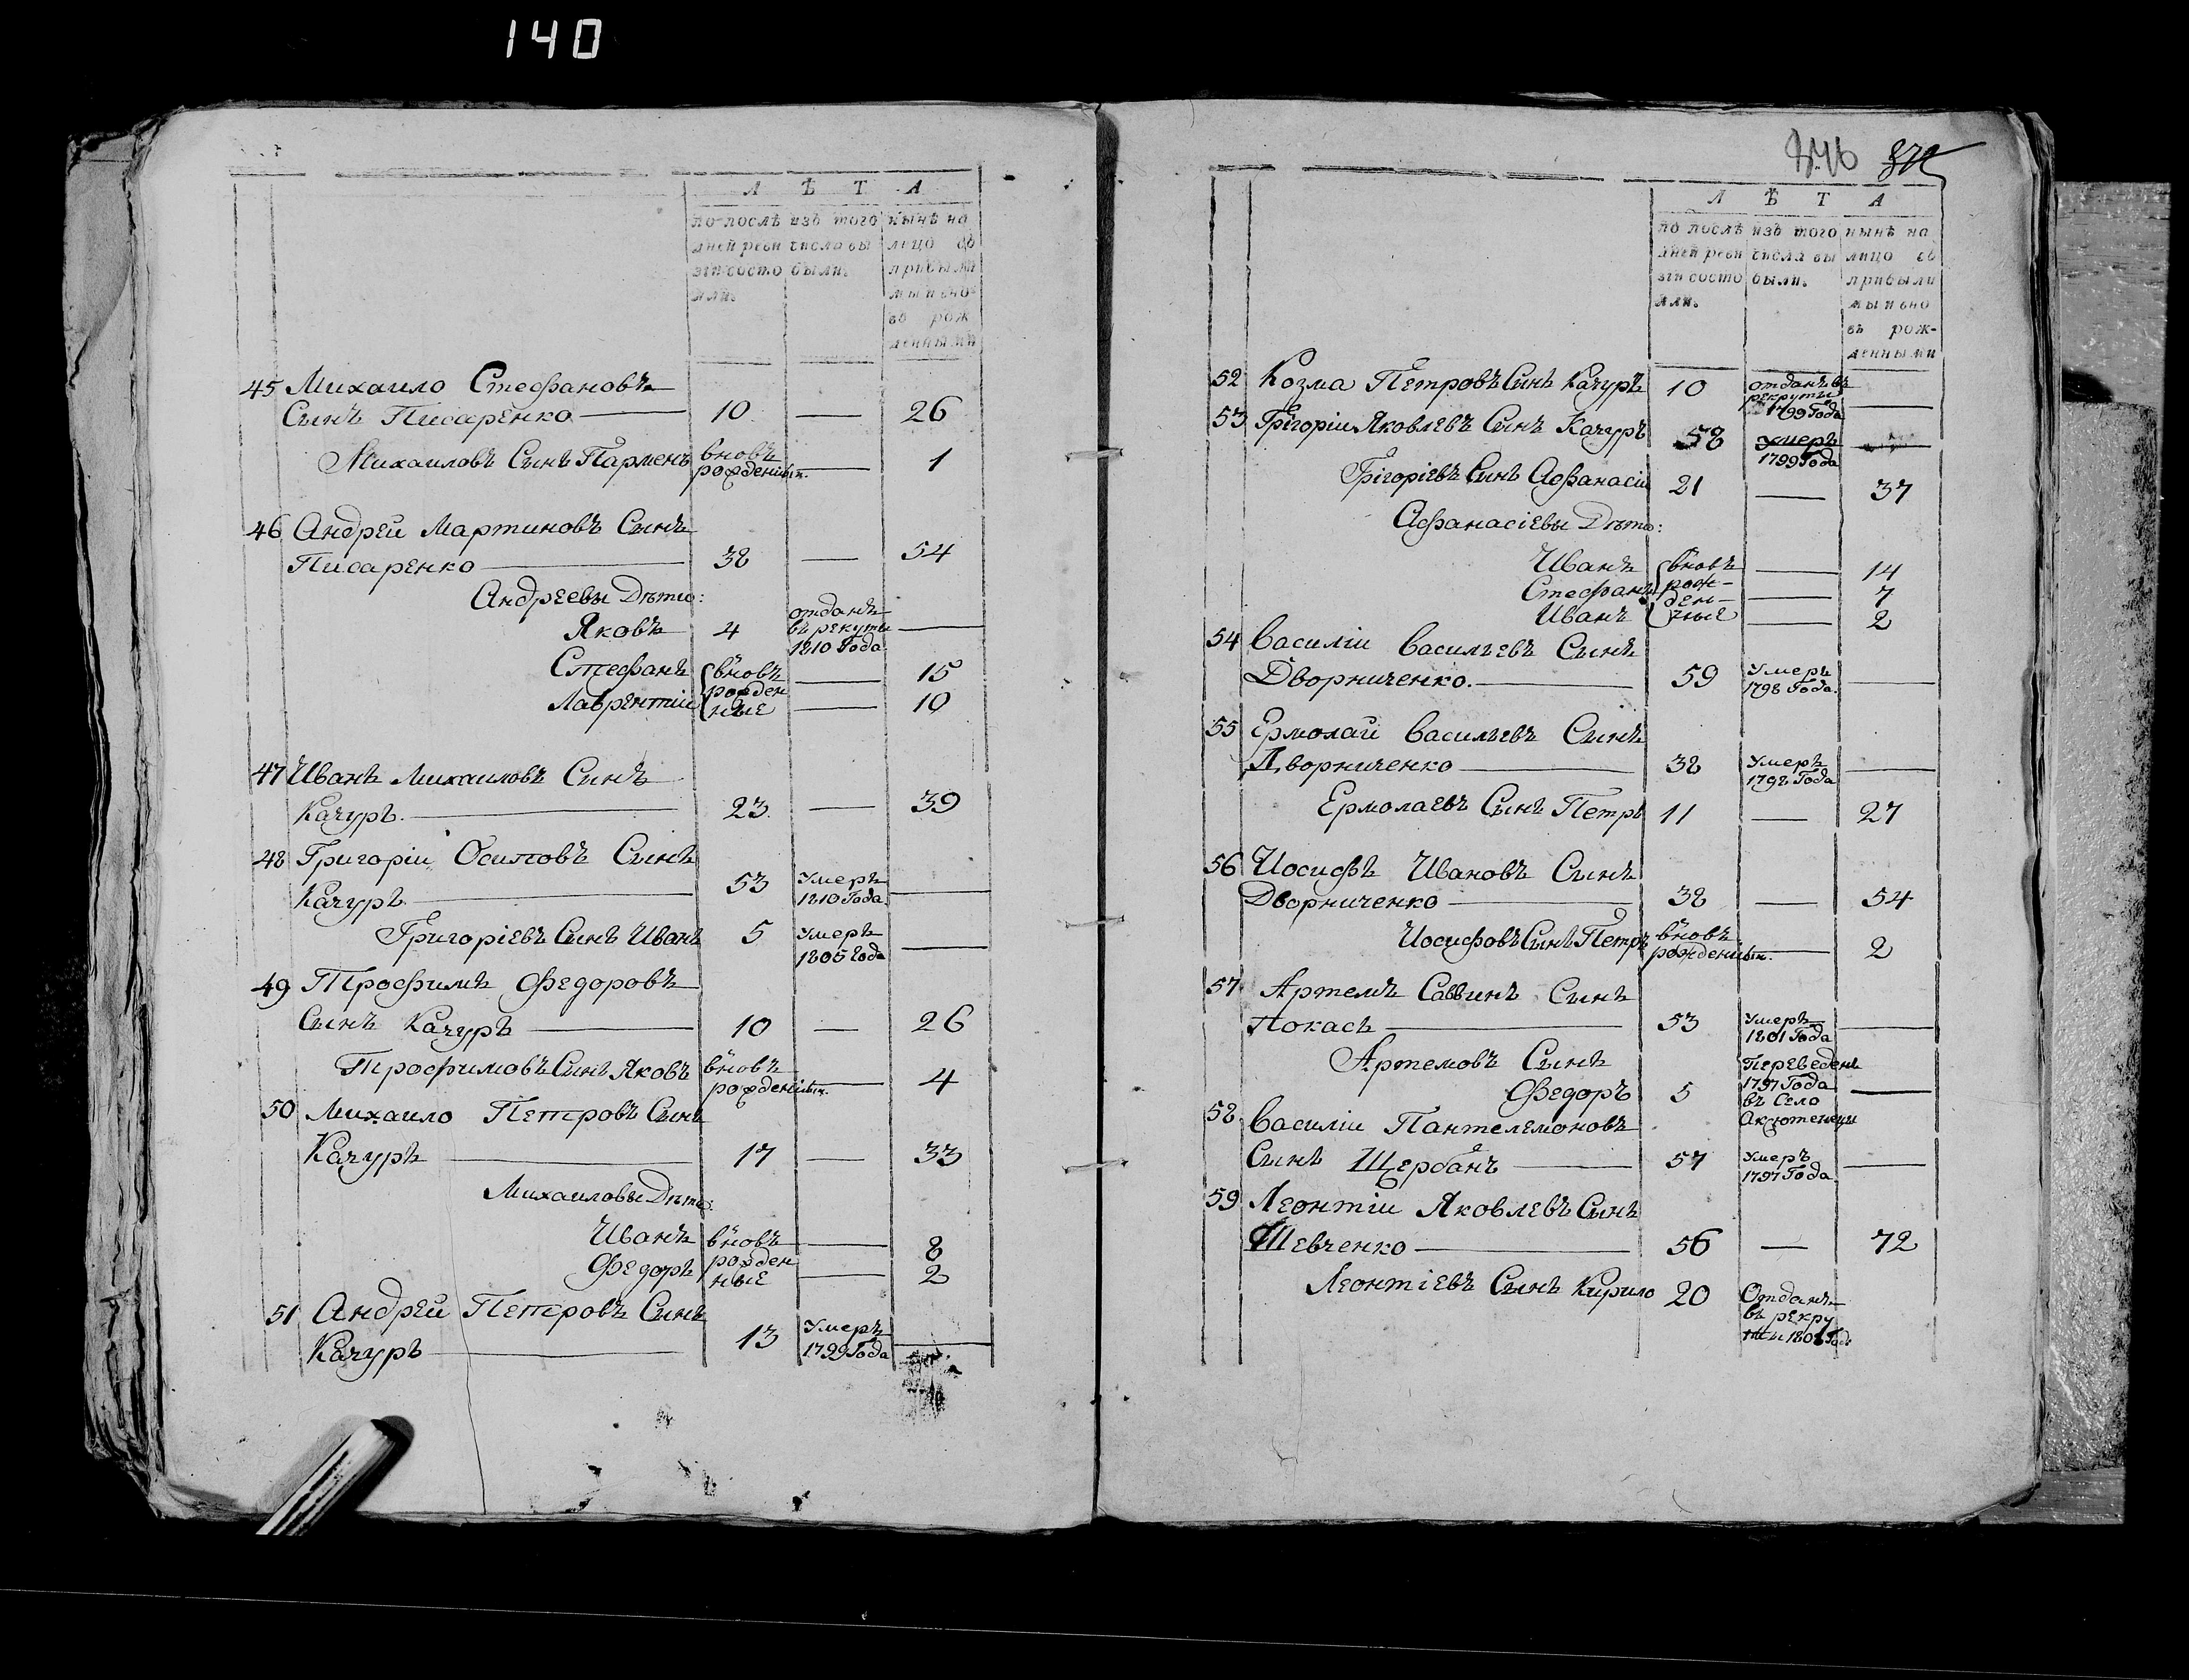 140
Л Ѣ Т А
по послѣ изъ того нынѣ на
дней реви числа вы лицо съ
зіи состо были. прибылы
яли. мы и вно
въ рож
денными
45 Михаило Стефановъ
Сынъ Писаренко 10 — 26
Михаиловъ Сынъ Парменъ вновь рожденный — 1
46 Андрей Мартиновъ Сынъ
Писаренко 38 — 54
Андреевы Дѣти:
Яковъ 4 отданъ въ рекруты 1810 Года —
Стефанъ вновь — 15
Лаврентій рожденные — 10
47 Иванъ Михаиловъ Сынъ
Качуръ. 23. — 39
48 Григоріи Осиповъ Сынъ
Качуръ 53 Умеръ 1810 Года. —
Григоріевъ Сынъ Иванъ 5 Умеръ 1805 Года —
49 Трофимъ Федоровъ
Сынъ Качуръ 10 — 26
Трофимовъ Сынъ Яковъ вновь рожденный — 4
50 Михаило Петровъ Сынъ
Качуръ 17 — 33
Михаиловы Дѣти:
Иванъ вновь — 8
Федоръ рожденные — 2
51 Андрей Петровъ Сынъ
Качуръ 13 Умеръ 1799 Года —
846
Л Ѣ Т А
по послѣ изъ того нынѣ на
дней реви числа вы лицо съ
зіи состо были. прибылы
яли. мы и вно
въ рож-
денными
52 Козма Петровъ Сынъ Качуръ 10 отданъ въ рекруты 1799 Года —
53 Грігоріи Яковлевъ Сынъ Качуръ 58 Умеръ 1799 Года —
Грігоріевъ Сынъ Афанасіи 21 — 37
Афанасіевы Дѣти:
Иванъ вновь — 14
Стефанъ рож-ден- — 7
Иванъ ные — 2
54 Василіи Васильевъ Сынъ
Дворниченко. 59 Умеръ 1798 Года. —
55 Ермолай Васильевъ Сынъ
Дворниченко 38 Умеръ 1798 Года —
Ермолаевъ Сынъ Петръ 11 — 27
56 Иосифъ Ивановъ Сынъ
Дворниченко 38 — 54
Иосифовъ Сынъ Петръ вновь рожденный — 2
57 Артемъ Саввинъ Сынъ
Покасъ 53 Умеръ 1801 Года —
Артемовъ Сынъ Переведенъ
Федоръ 5 1797 Года въ Село —
58 Василіи Пантелемоновъ
Сынъ Щербанъ 57 Умеръ 1797 Года. —
59 Леонтіи Яковлевъ Сынъ
Шевченко 56 — 72
Леонтіевъ Сынъ Кирило 20 Отданъ
въ рекру
ты